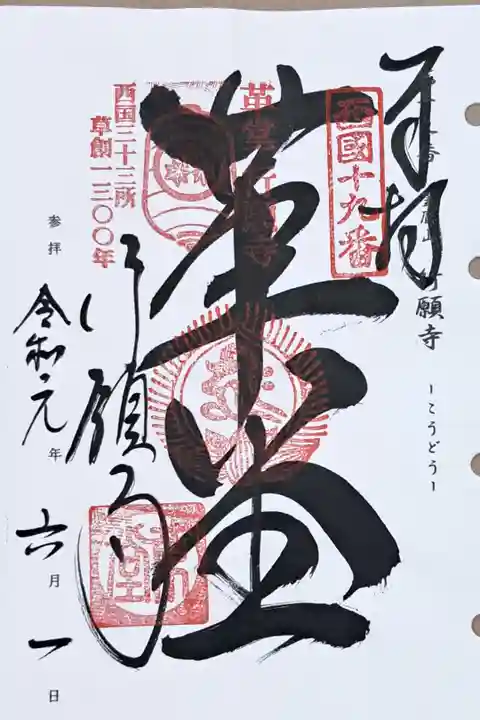 奉拝
西國十九番
行願寺
ーこうどうー
革堂
革堂行願寺
西国三十三所
草創一三〇〇年
行願寺
参拝 令和元年 六月 一日